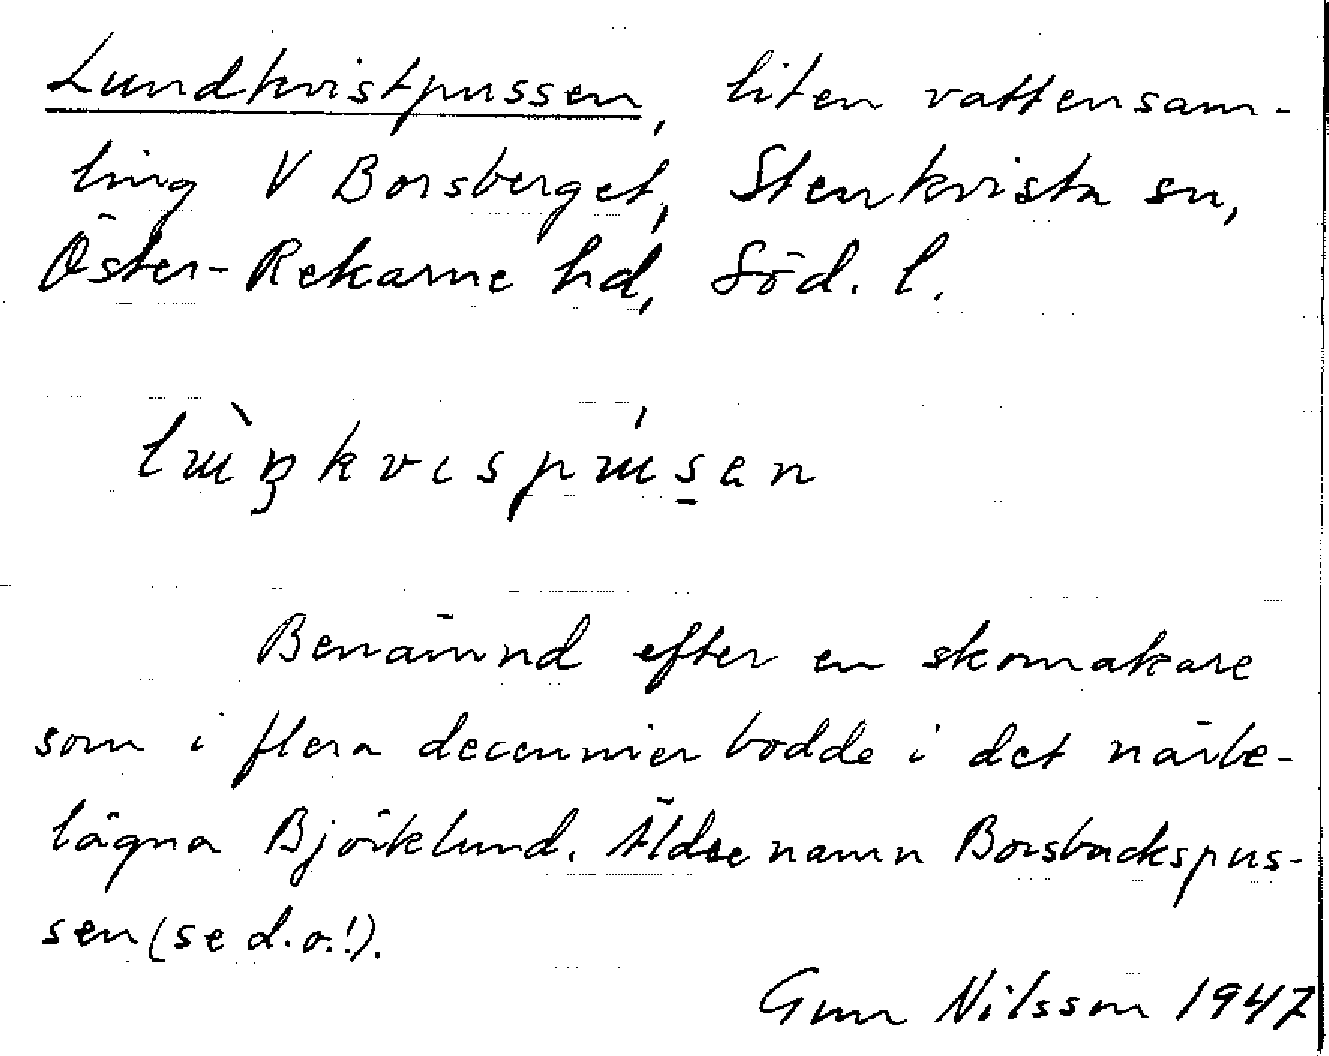 Lundkvistpussen, liten vattensam-
ling V Borsberget, Stenkvista sn,
Öster-Rekarne hd, Söd. l.
Benämnd efter en skomakare
som i flera decennier bodde i det närbe-
lägna Björklund. Äldre namn Borsbackspus-
sen (se d.o.!).
Gun Nilsson 1947